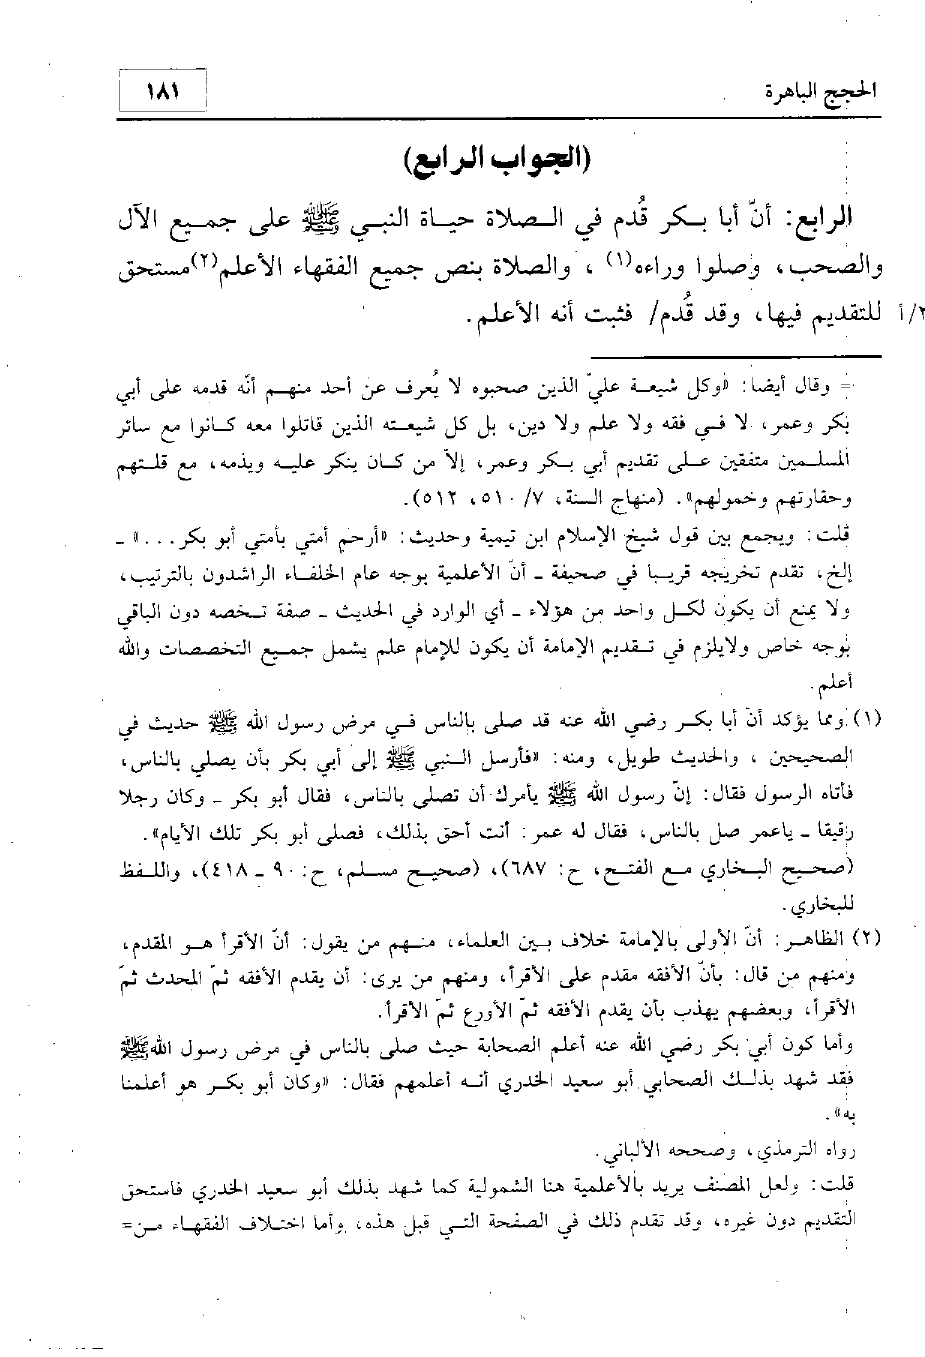 الحجج الباهرة
١٨١
(الجواب الرابع)
الرابع: أنّ أبا بكر قُدم في الصلاة حياة النبي ﷺ على جميع الآل
والصحب، وصلوا وراءه(١) ، والصلاة بنص جميع الفقهاء الأعلم(٢) مستحق
٢/أ للتقديم فيها، وقد قُدم/ فثبت أنه الأعلم.
= وقال أيضا: «وكل شيعة عليّ الذين صحبوه لا يُعرف عن أحد منهم أنّه قدمه على أبي
بكر وعمر، لا في فقه ولا علم ولا دين، بل كل شيعته الذين قاتلوا معه كانوا مع سائر
المسلمين متفقين على تقديم أبي بكر وعمر، إلاّ من كان ينكر عليه ويذمه، مع قلتهم
وحقارتهم وخمولهم». (منهاج السنة، ٧/ ٥١٠، ٥١٢).
قلت: ويجمع بين قول شيخ الإسلام ابن تيمية وحديث: «أرحم أمتي بأمتي أبو بكر...» ـ
إلخ، تقدم تخريجه قريبا في صحيفة ـ أنّ الأعلمية بوجه عام الخلفاء الراشدون بالترتيب،
ولا يمنع أن يكون لكل واحد من هؤلاء ـ أي الوارد في الحديث ـ صفة تخصه دون الباقي
بوجه خاص ولايلزم في تقديم الإمامة أن يكون للإمام علم يشمل جميع التخصصات والله
أعلم.
(١) ومما يؤكد أنّ أبا بكر رضي الله عنه قد صلى بالناس في مرض رسول الله ﷺ حديث في
الصحيحين ، والحديث طويل، ومنه: «فأرسل النبي ﷺ إلى أبي بكر بأن يصلي بالناس،
فأتاه الرسول فقال: إنّ رسول الله ﷺ يأمرك أن تصلى بالناس، فقال أبو بكر ـ وكان رجلا
رقيقا ـ ياعمر صل بالناس، فقال له عمر: أنت أحق بذلك، فصلى أبو بكر تلك الأيام».
(صحيح البخاري مع الفتح، ح: ٦٨٧)، (صحيح مسلم، ح: ٩٠ ـ ٤١٨)، واللفظ
للبخاري.
(٢) الظاهر: أنّ الأولى بالإمامة خلاف بين العلماء، منهم من يقول: أنّ الأقرأ هو المقدم،
ومنهم من قال: بأنّ الأفقه مقدم على الأقرأ، ومنهم من يرى: أن يقدم الأفقه ثمّ المحدث ثمّ
الأقرأ، وبعضهم يهذب بأن يقدم الأفقه ثمّ الأورع ثمّ الأقرأ.
وأما كون أبي بكر رضي الله عنه أعلم الصحابة حيث صلى بالناس في مرض رسول الله ﷺ
فقد شهد بذلك الصحابي أبو سعيد الخدري أنه أعلمهم فقال: «وكان أبو بكر هو أعلمنا
به».
رواه الترمذي، وصححه الألباني.
قلت: ولعل المصنف يريد بالأعلمية هنا الشمولية كما شهد بذلك أبو سعيد الخدري فاستحق
التقديم دون غيره، وقد تقدم ذلك في الصفحة التي قبل هذه، وأما اختلاف الفقهاء من=